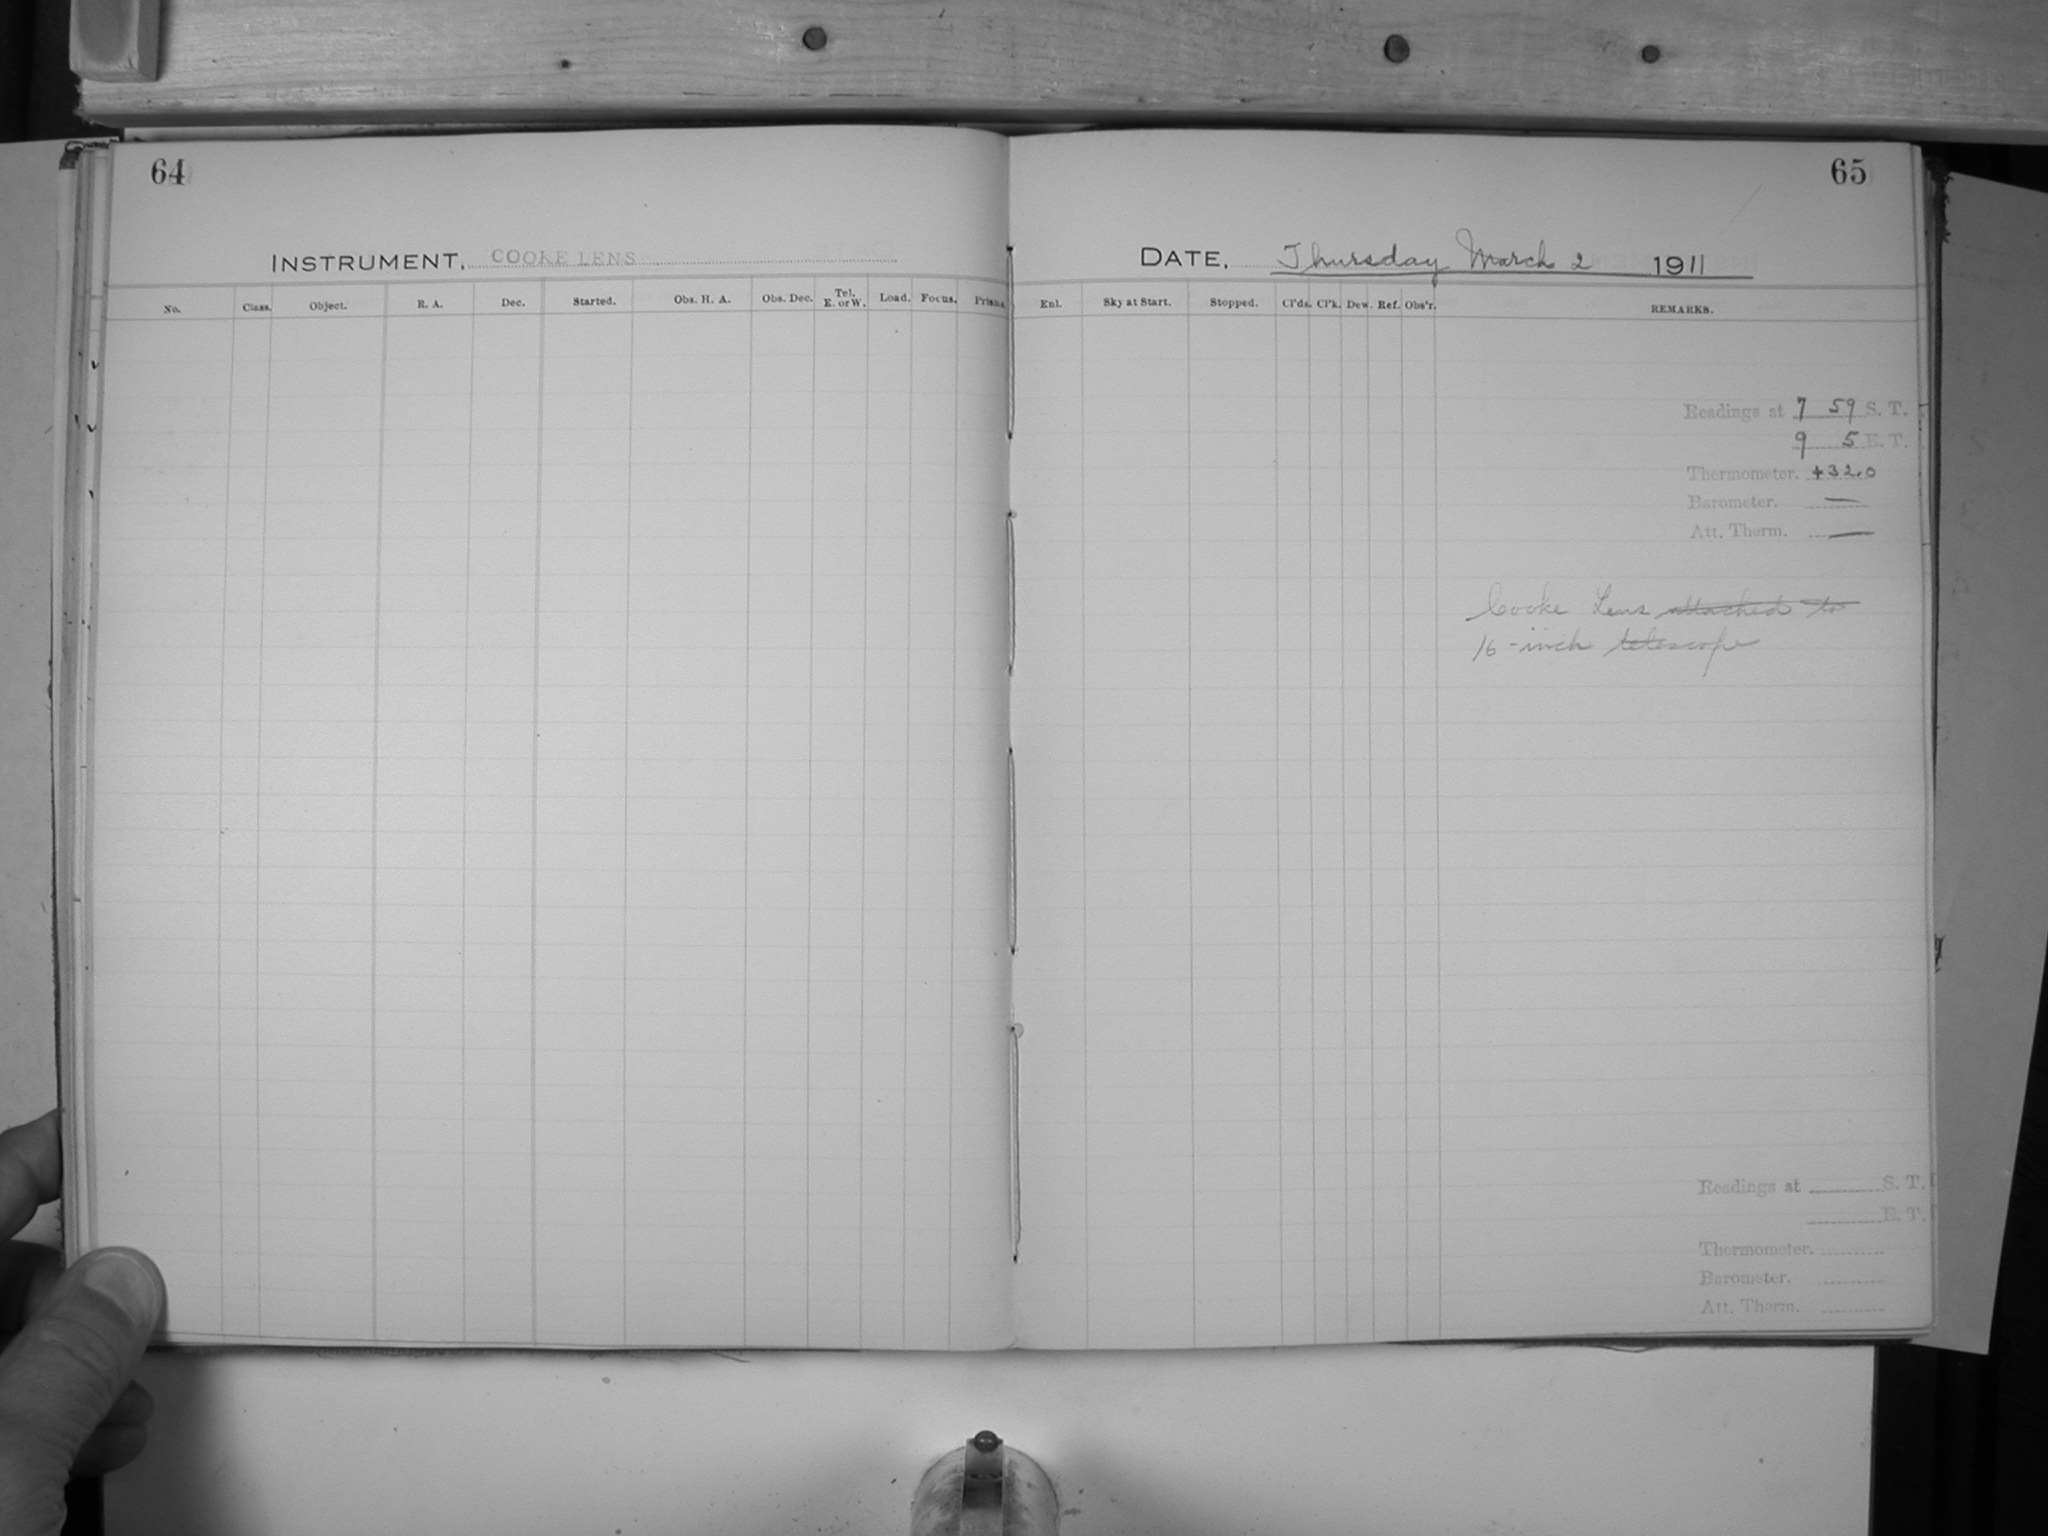 64
INSTRUMENT. COOKE LENS
No. Class. Object. R. A. Dec. Started. Obs. H. A. Obs. Dec. Tel. E. or W. Load. Focus. Prisms.
65
DATE. Thursday March 2 1911
Enl. Sky at Start. Stopped. Cl'ds. Cl'k. Dew. Ref. Obs'r. REMARKS.
Readings at 7 59 S. T.
9 5 E. T.
Thermometer. +32.0
Barometer. —
Att. Therm. —
Cooke Lens attached to
16-inch telescope
Readings at S. T.
E. T.
Thermometer.
Barometer.
Att. Therm.